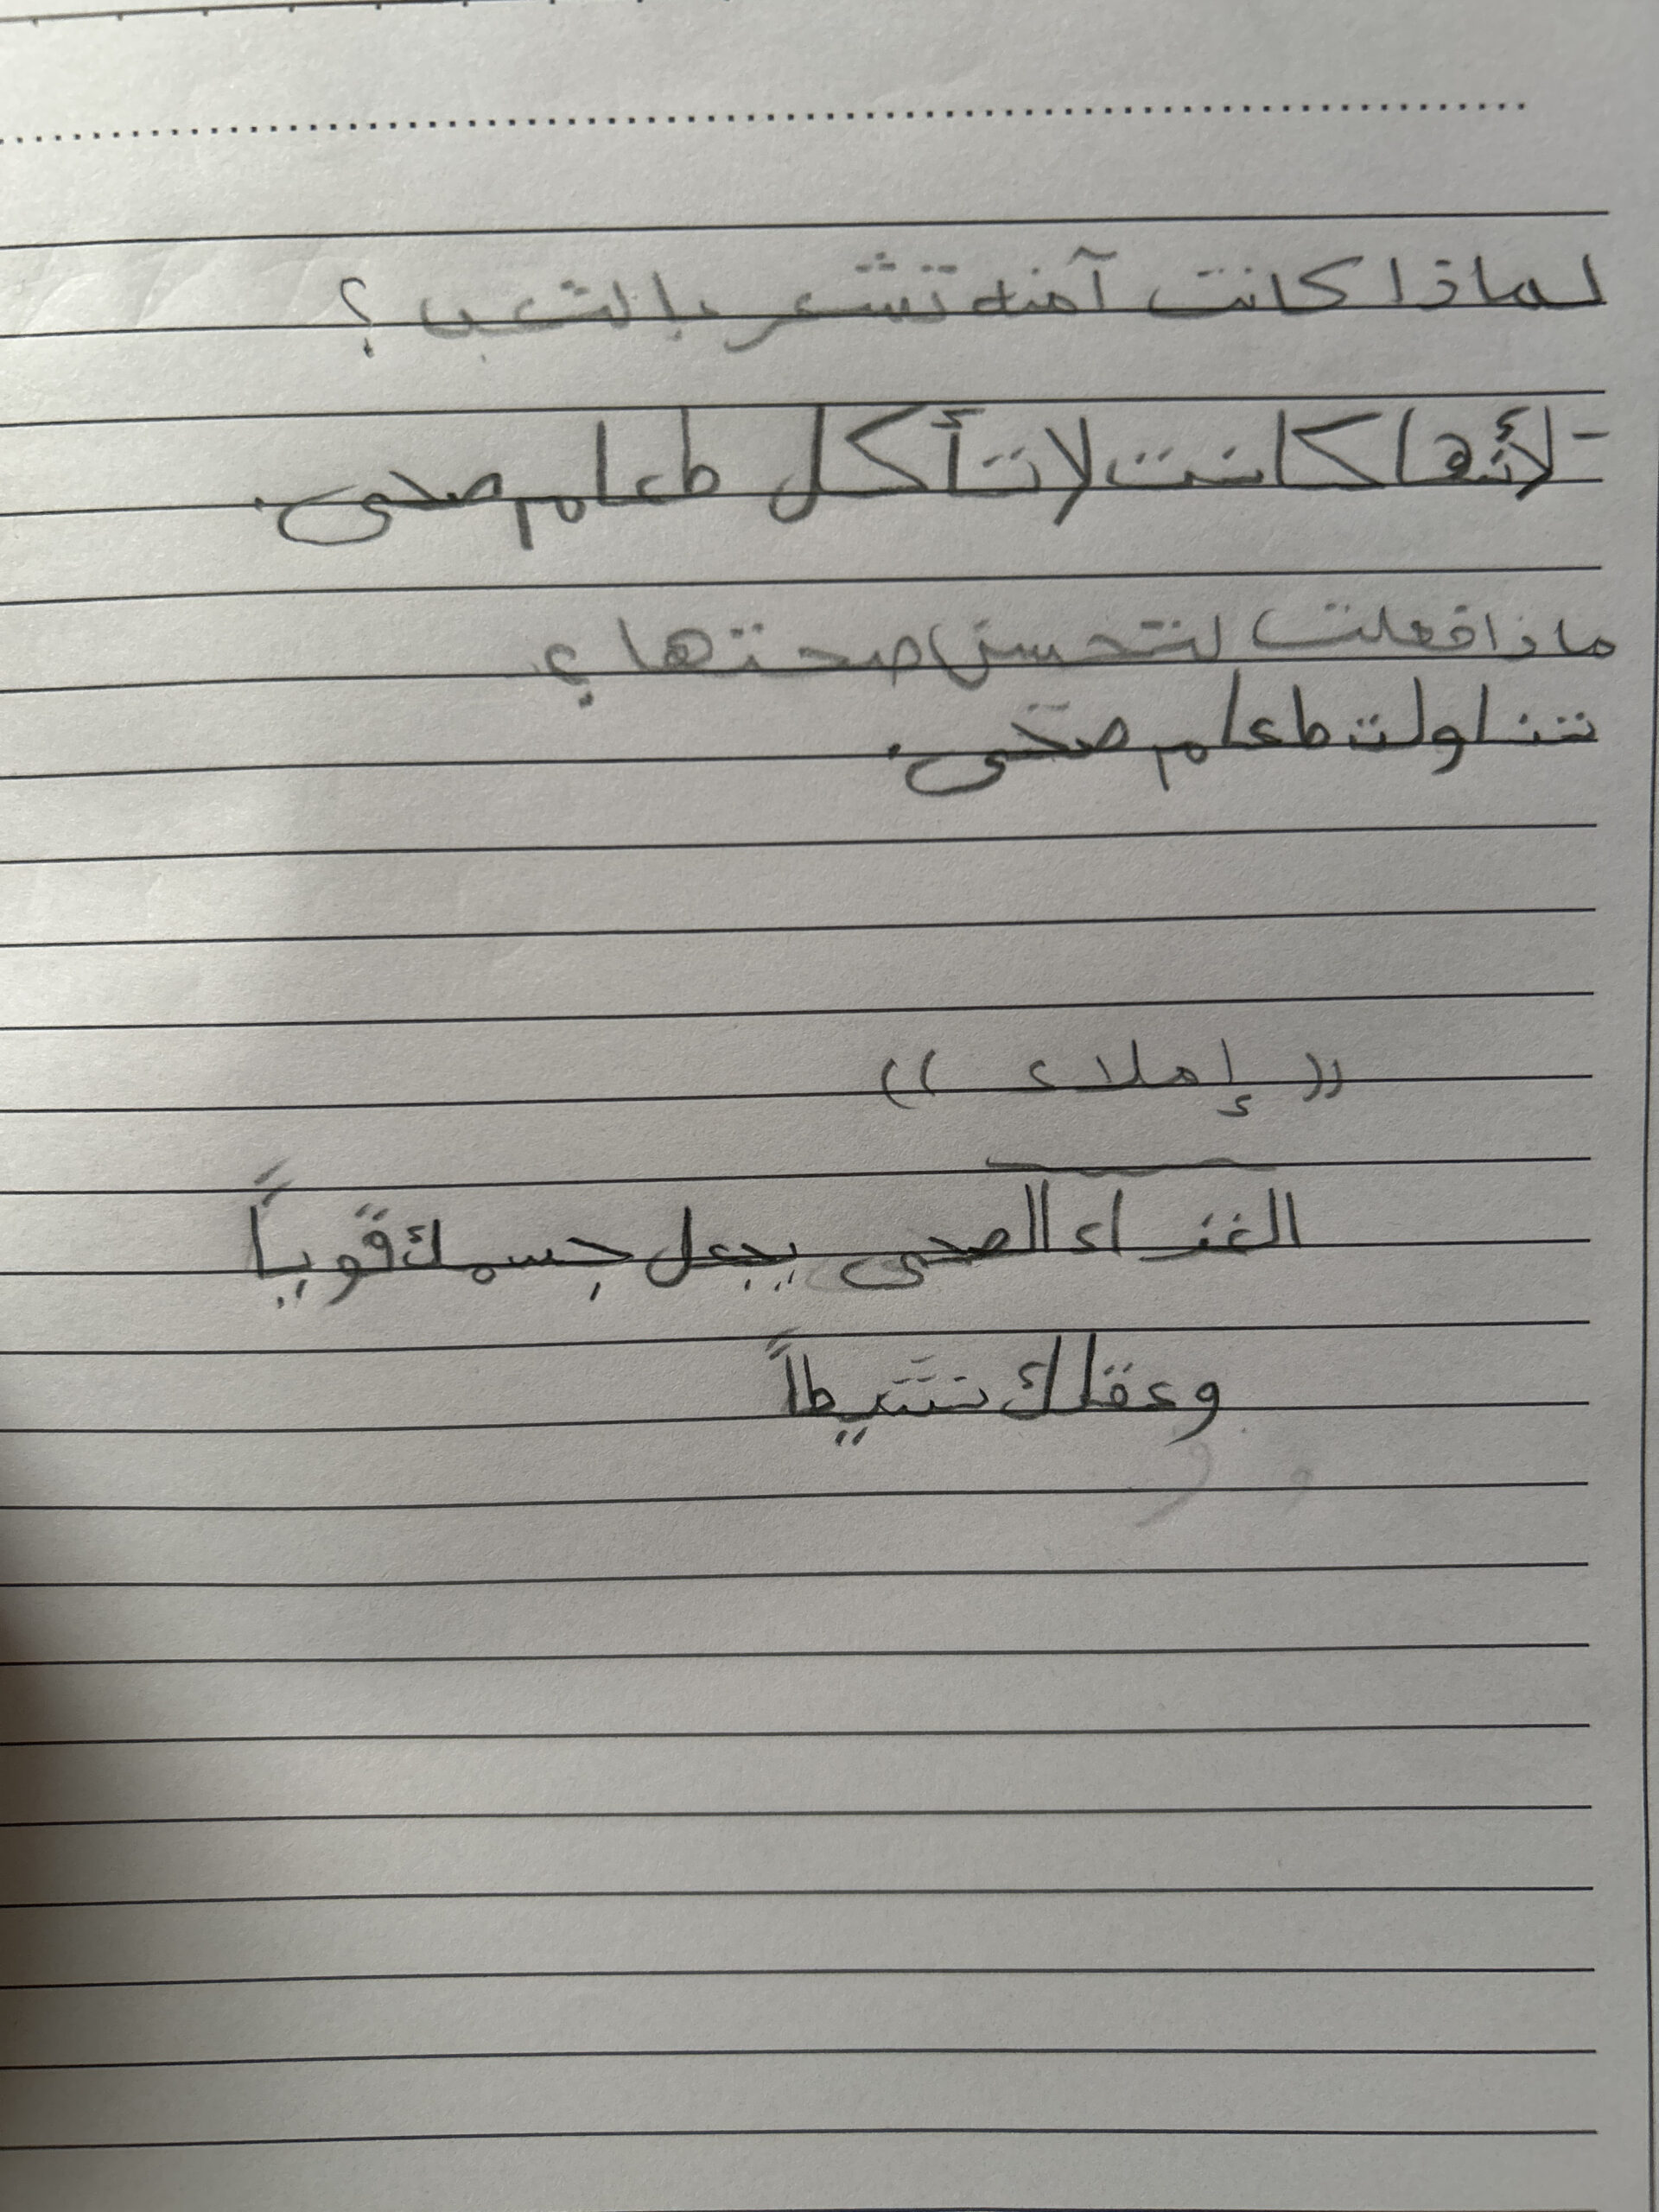 لماذا كانت آمنه تشعر بالتعب ؟
- لأنها كانت لا تأكل طعام صحى.
ماذا فعلت لتحسن صحتها ؟
تناولت طعام صحى.
(( إملاء ))
الغذاء الصحى يجعل جسمك قوياً
وعقلك نشيطاً